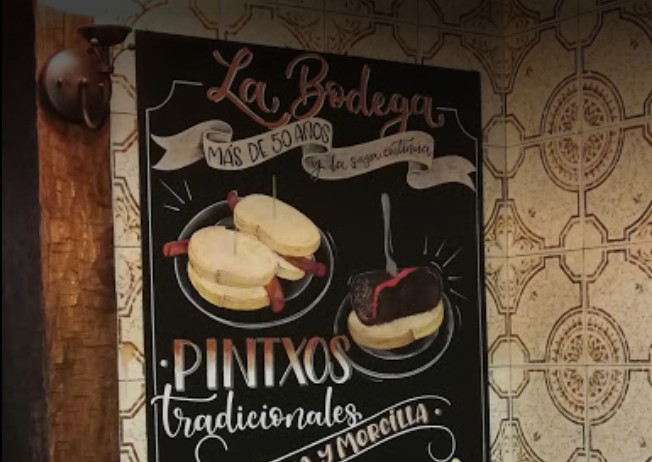 La Bodega
MÁS DE 50 AÑOS
y la saga continúa
·PINTXOS
tradicionales
Y MORCILLA·